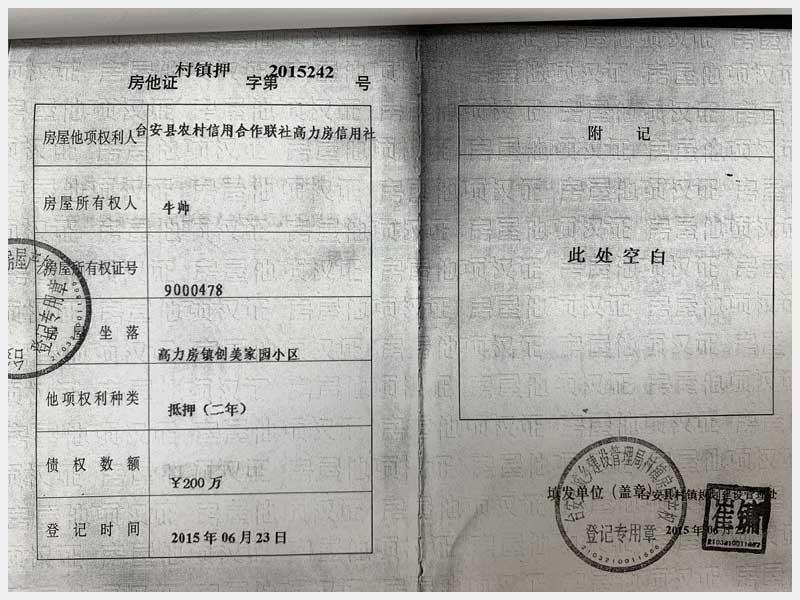 村镇押 2015242
房他证 字第 号
房屋他项权利人 台安县农村信用合作联社高力房信用社
房屋所有权人 牛帅
房屋所有权证号 9000478
屋坐落 高力房镇创美家园小区
他项权利种类 抵押（二年）
债权数额 ￥200万
登记时间 2015年06月23日
登记专用章
附记
此处空白
填发单位（盖章） 台安县村镇规划建设管理处
2015年06月23日
登记专用章
2103210011666